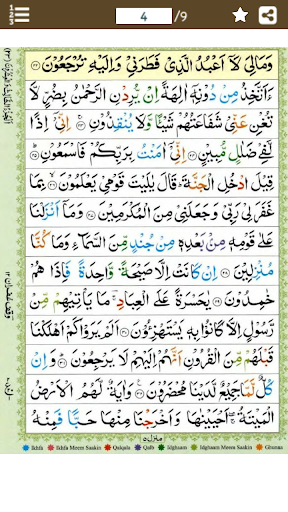 4 /9
وَمَالِىَ لَاۤ اَعۡبُدُ الَّذِىۡ فَطَرَنِىۡ وَاِلَيۡهِ تُرۡجَعُوۡنَ ﴿۲۲﴾
ءَاَتَّخِذُ مِنۡ دُوۡنِهٖۤ اٰلِهَةً اِنۡ يُّرِدۡنِ الرَّحۡمٰنُ بِضُرٍّ لَّا
تُغۡنِ عَنِّىۡ شَفَاعَتُهُمۡ شَيۡـًٔا وَّلَا يُنۡقِذُوۡنِ ﴿۲۳﴾ اِنِّىۡۤ اِذًا
لَّفِىۡ ضَلٰلٍ مُّبِيۡنٍ ﴿۲۴﴾ اِنِّىۡۤ اٰمَنۡتُ بِرَبِّكُمۡ فَاسۡمَعُوۡنِ ﴿۲۵﴾
قِيۡلَ ادۡخُلِ الۡجَنَّةَ ؕ قَالَ يٰلَيۡتَ قَوۡمِىۡ يَعۡلَمُوۡنَ ﴿۲۶﴾ بِمَا
غَفَرَ لِىۡ رَبِّىۡ وَجَعَلَنِىۡ مِنَ الۡمُكۡرَمِيۡنَ ﴿۲۷﴾ وَمَاۤ اَنۡزَلۡنَا
عَلٰى قَوۡمِهٖ مِنۡۢ بَعۡدِهٖ مِنۡ جُنۡدٍ مِّنَ السَّمَآءِ وَمَا كُنَّا
مُنۡزِلِيۡنَ ﴿۲۸﴾ اِنۡ كَانَتۡ اِلَّا صَيۡحَةً وَّاحِدَةً فَاِذَا هُمۡ
خٰمِدُوۡنَ ﴿۲۹﴾ يٰحَسۡرَةً عَلَى الۡعِبَادِ ۚ مَا يَاۡتِيۡهِمۡ مِّنۡ
رَّسُوۡلٍ اِلَّا كَانُوۡا بِهٖ يَسۡتَهۡزِءُوۡنَ ﴿۳۰﴾ اَلَمۡ يَرَوۡا كَمۡ اَهۡلَكۡنَا
قَبۡلَهُمۡ مِّنَ الۡقُرُوۡنِ اَنَّهُمۡ اِلَيۡهِمۡ لَا يَرۡجِعُوۡنَ ﴿۳۱﴾ وَاِنۡ
كُلٌّ لَّمَّا جَمِيۡعٌ لَّدَيۡنَا مُحۡضَرُوۡنَ ﴿۳۲﴾ وَاٰيَةٌ لَّهُمُ الۡاَرۡضُ
الۡمَيۡتَةُ ۖۚ اَحۡيَيۡنٰهَا وَاَخۡرَجۡنَا مِنۡهَا حَبًّا فَمِنۡهُ
منزل ۵
Ikhfa Ikhfa Meem Saakin Qalqala Qalb Idghaam Idghaam Meem Saakin Ghunna